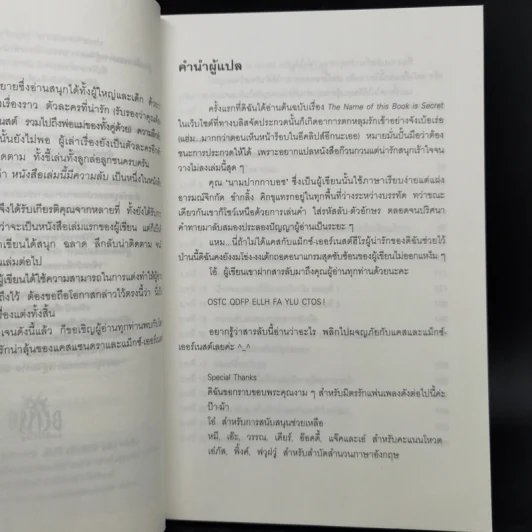 ายซึ่งอ่านสนุกได้ทั้งผู้ใหญ่และเด็ก ด้วย
เรื่องราว ตัวละครที่น่ารัก (รับรองว่าคุณ
นสต์ รวมไปถึงพ่อแม่ของทั้งคู่ด้วย ความลึก
นั้นยังไม่พอ ผู้เล่าเรื่องยังเป็นตัวละคร
ดตาม ทั้งขี้เล่นทั้งลูกล่อลูกชนครบครัน
ว่า หนังสือเล่มนี้มีความลับ เป็นหนึ่งในหนัง
จึงได้รับเกียรติคุณจากหลายที่ ทั้งยังได้รับ
ว่าจะเป็นหนังสือเล่มแรกของผู้เขียน แต่
เขียนได้สนุก ฉลาด ลึกลับน่าติดตาม
นเล่มต่อไป
ผู้เขียนได้ใช้ความสามารถในการแต่งทำให้ผู้
ถึงไว้ ต้องขอถือโอกาสกล่าวไว้ตรงนี้ว่า
รื่องแต่งทั้งสิ้น
เจนดังนี้แล้ว ก็ขอเชิญผู้อ่านทุกท่านพบกับ
รักน่าลุ้นของแคสแซนดราและแม็กซ์-เออร์เนส
คำนำผู้แปล
ครั้งแรกที่ดิฉันได้อ่านต้นฉบับเรื่อง The Name of this Book is Secret
ในเว็บไซต์ที่ทางบลิสจัดประกวดนั้นก็เกิดอาการตกหลุมรักเข้าอย่างจังเบ้อเร่อ
(แฮ่ม...มากกว่าตอนเห็นหน้าร็อบในอีคลิปส์อีกนะเออ) หมายมั่นปั้นมือว่าต้อง
ชนะการประกวดให้ได้ เพราะอยากแปลหนังสือกวนกวนแต่น่ารักสนุกเร้าใจจน
วางไม่ลงเล่มนี้สุด ๆ
คุณ 'นามปากกาบอช' ซึ่งเป็นผู้เขียนนั้นใช้ภาษาเรียบง่ายแต่แฝง
อารมณ์จิกกัด ขำกลิ้ง คิกขุแทรกอยู่ในทุกพื้นที่ว่างระหว่างบรรทัด ทว่าขณะ
เดียวกันเขาก็โชว์เหนือด้วยการเล่นคำ ใส่รหัสลับ-ตัวอักษร ตลอดจนปริศนา
คำทายมาลับสมองประลองปัญญาผู้อ่านเป็นระยะ ๆ
แหม...นี่ถ้าไม่ได้แคสและแม็กซ์-เออร์เนสต์ฮีโร่ผู้น่ารักของดิฉันช่วยไว้
ป่านนี้ดิฉันคงยังงมโข่งงงเต็กถอดอนาแกรมสุดซับซ้อนของผู้เขียนไม่ออกแหง็ม ๆ
โอ้ ผู้เขียนเขาฝากสารลับมาถึงคุณผู้อ่านทุกท่านด้วยนะคะ
OSTC QDFP ELLH FA YLU CTOS !
อยากรู้ว่าสารลับนี้อ่านว่าอะไร พลิกไปผจญภัยกับแคสและแม็กซ์-
เออร์เนสต์เลยค่ะ ^_^
Special Thanks
ดิฉันขอกราบขอบพระคุณงาม ๆ สำหรับมิตรรักแฟนเพลงดังต่อไปนี้ค่ะ
ป๊า-ม้า
โย่ สำหรับการสนับสนุนช่วยเหลือ
หมี, เอ๊ะ, วรรณ, เคียร์, อ๊อดดี้, แจ๊คและเย่ สำหรับคะแนนโหวต
เย่ภัส, พิ้งค์, สำหรับสำบัดสำนวนภาษาอังกฤษ